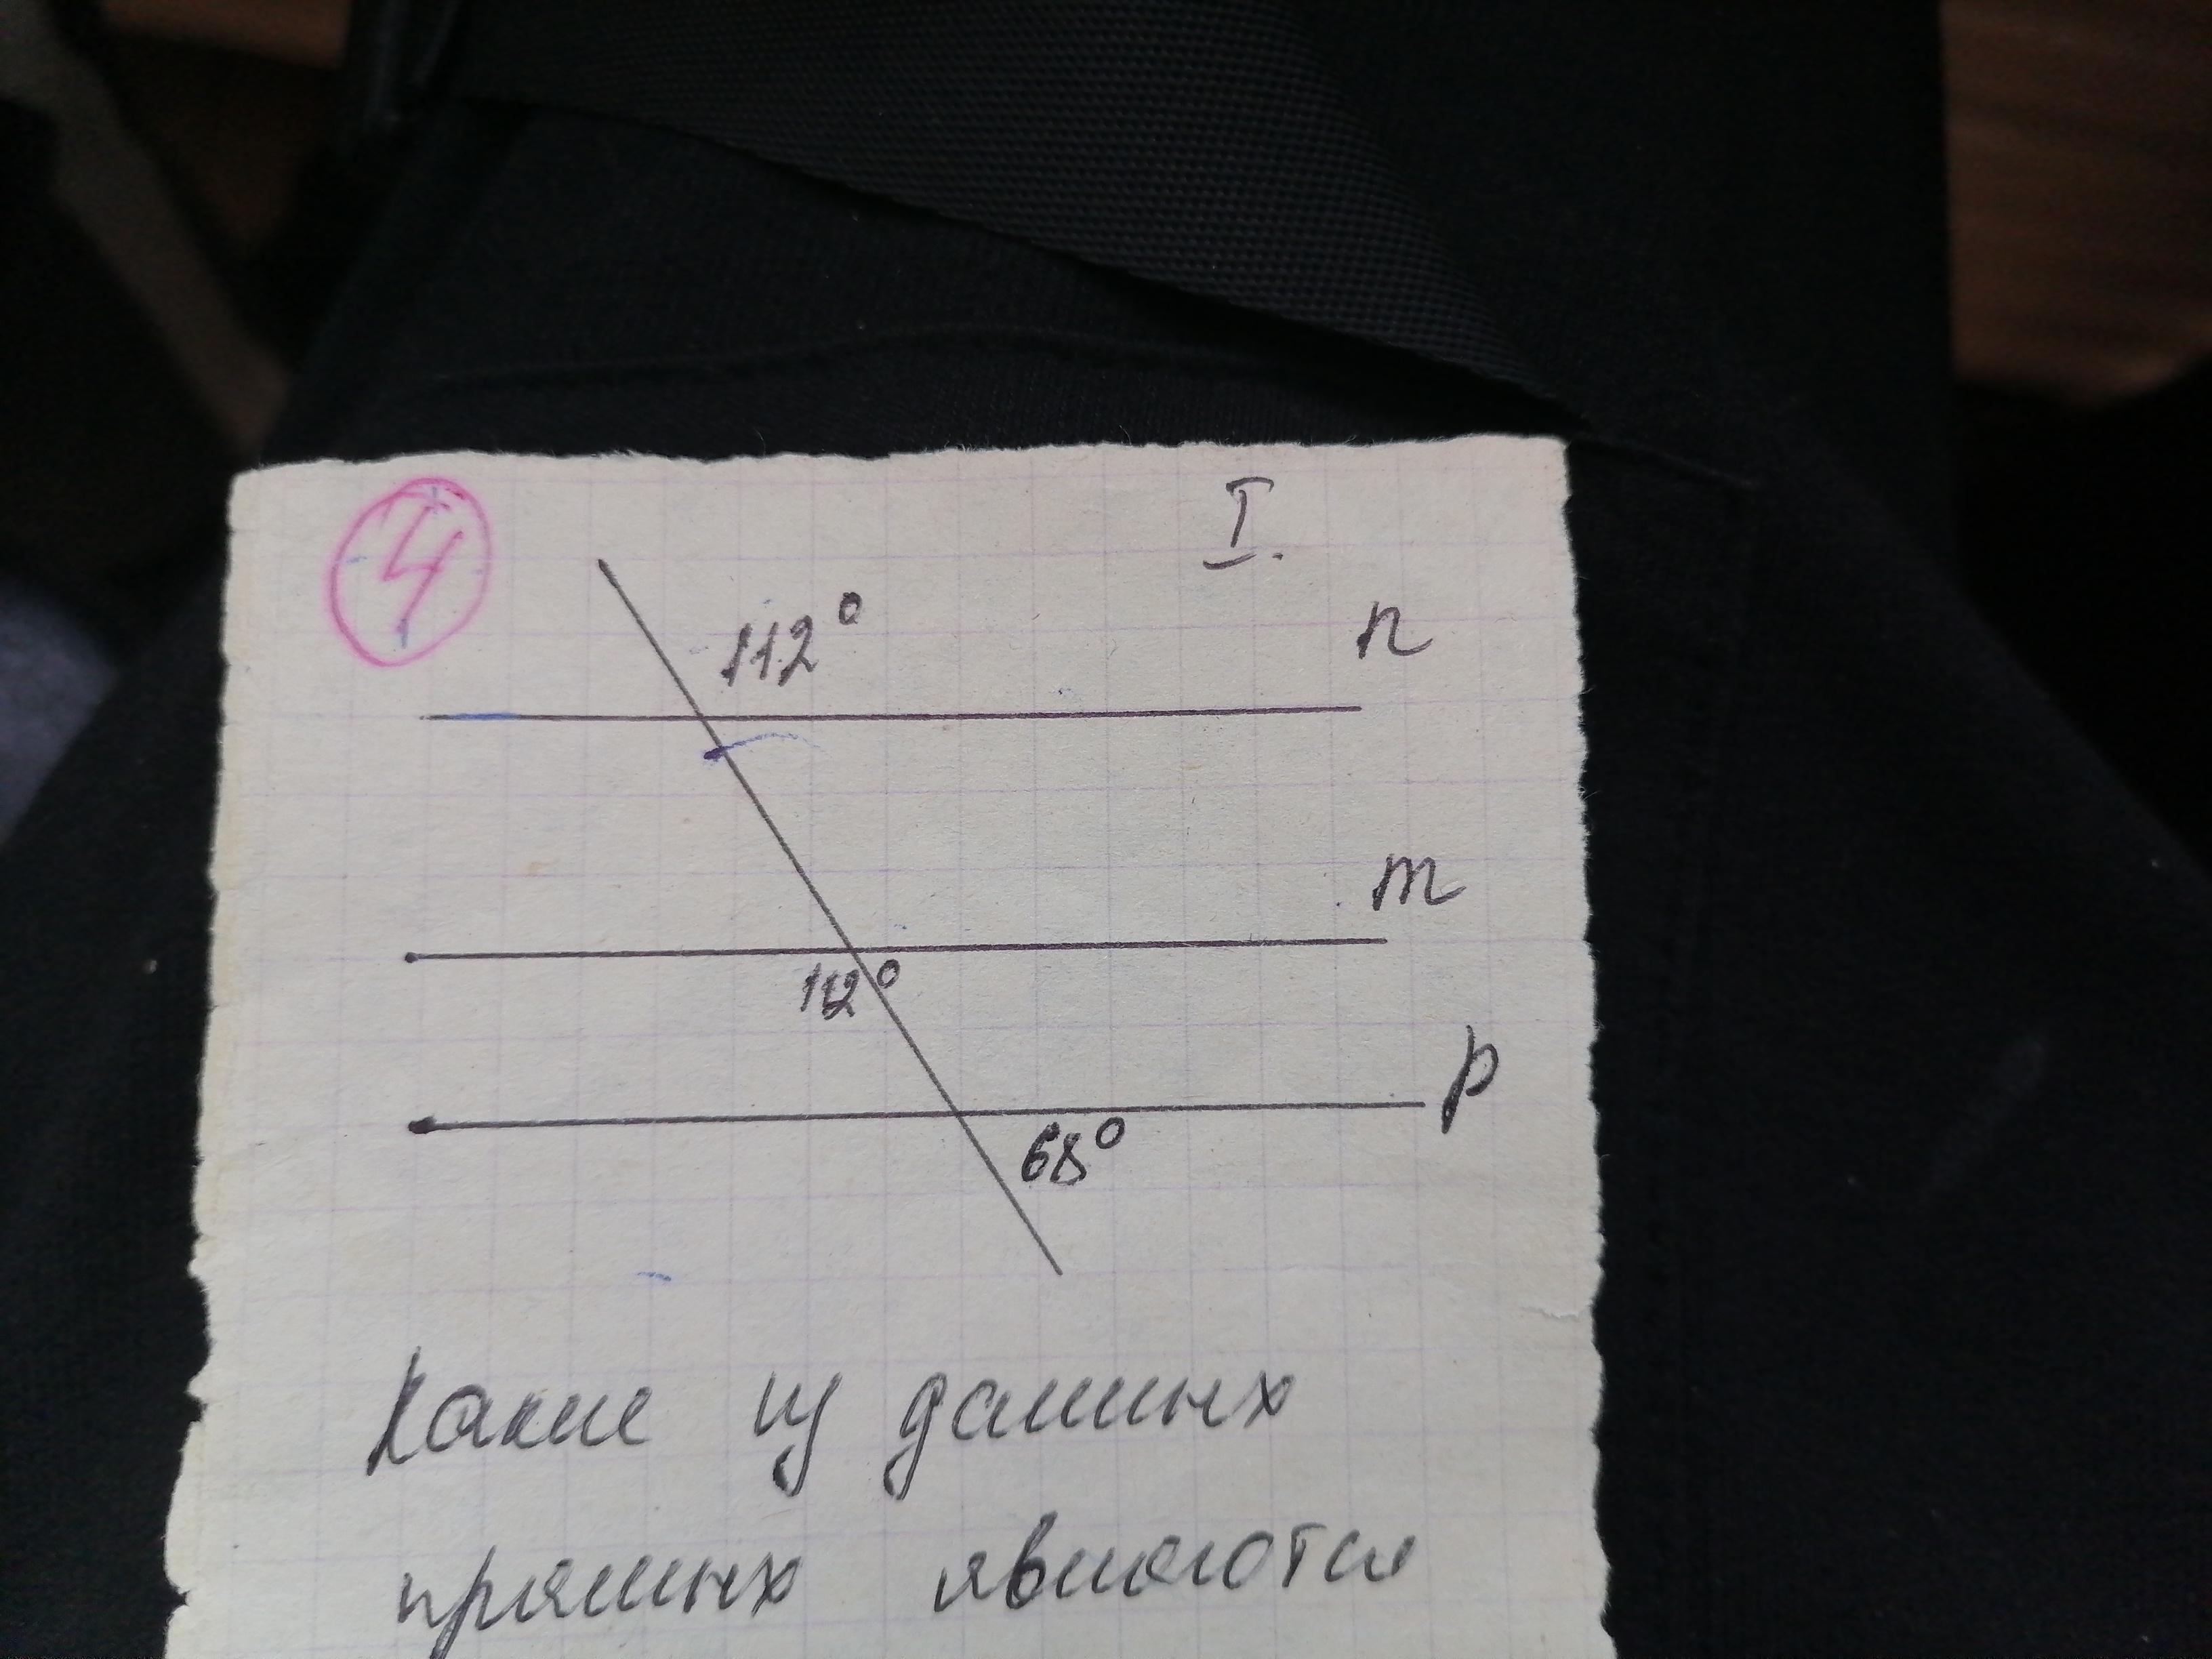 4
I.
112°
n
m
112°
p
68°
Какие из данных
прямых являются